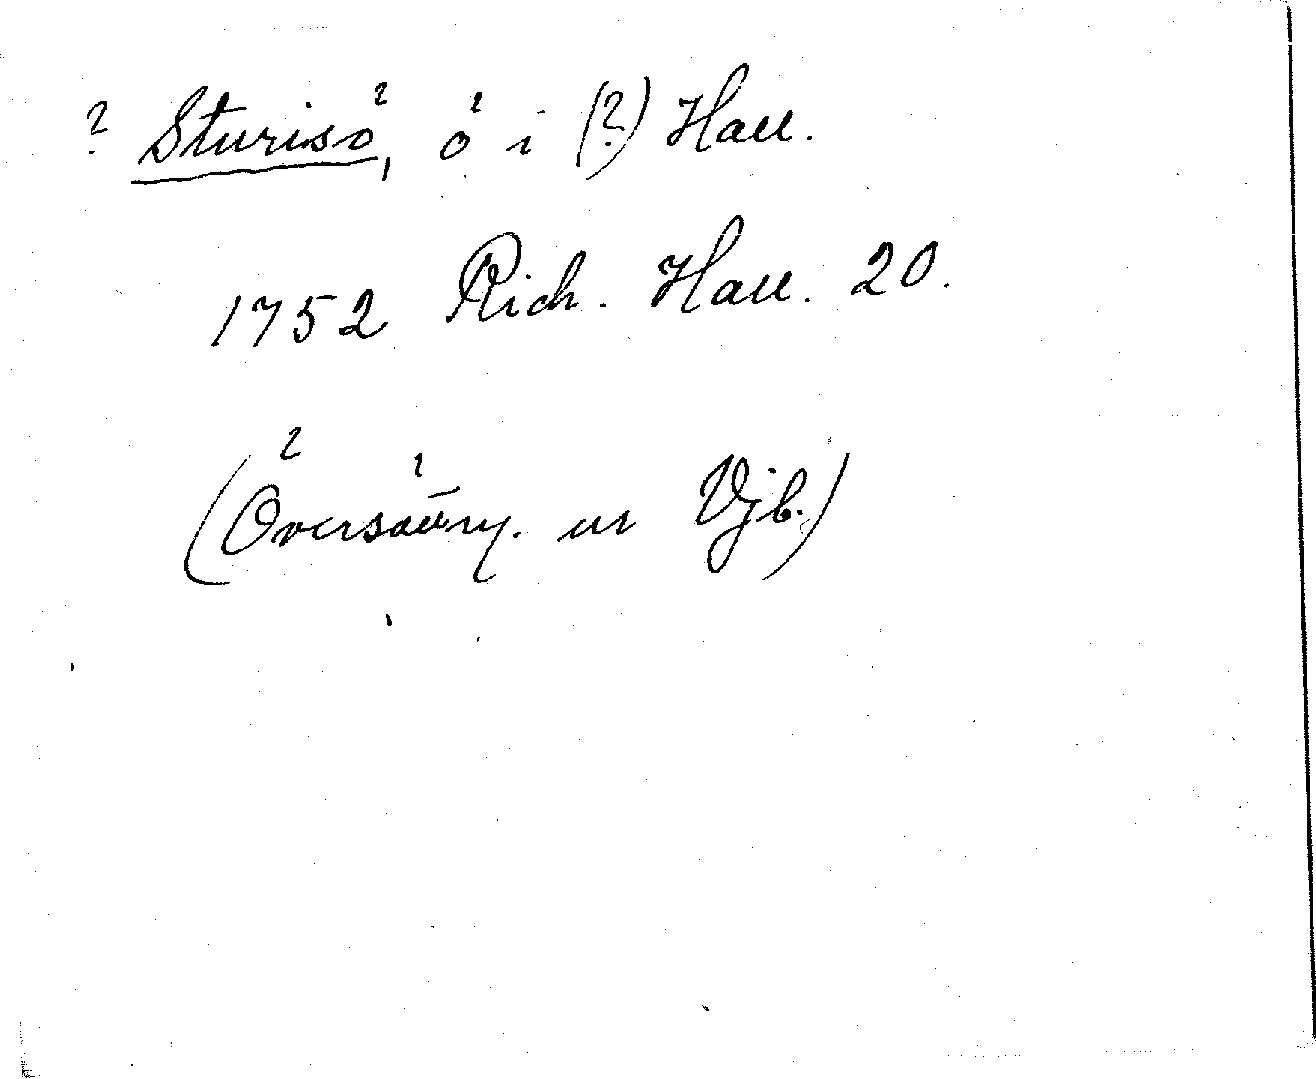 ? Sturisö, ö i (?) Hall.
1752 Rich. Hall. 20.
(Översättn. ur Vjb.)